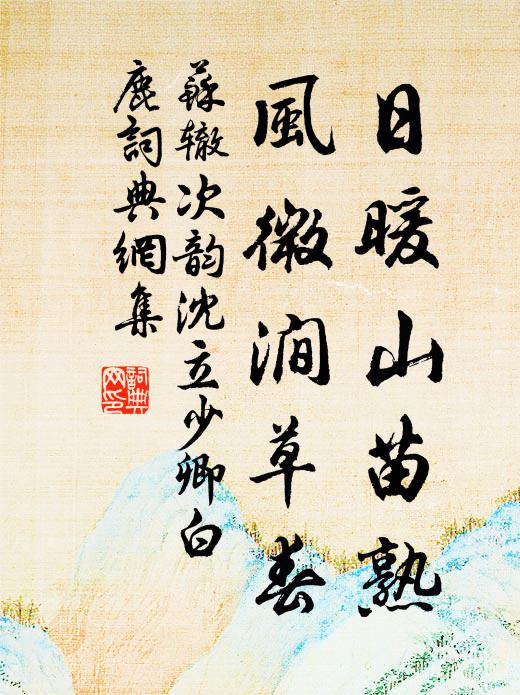 日暖山苗熟
風微澗草春
蘇轍次韵沈立少卿白
鹿詞典網集
詞典网印